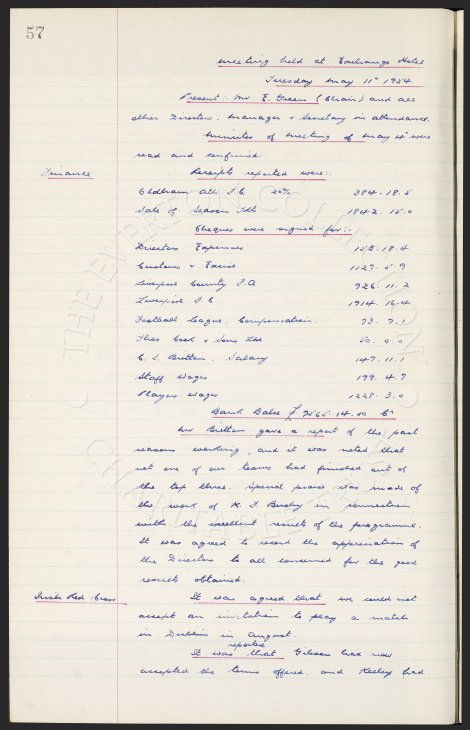 57
Meeting held at Exchange Hotel
Tuesday May 11th 1954
Present:- Mr E. Green (Chair) and all
other Directors. Manager & Secretary in attendance.
Minutes of meeting of May 4th were
read and confirmed.
Finance
Receipts reported were:-
Oldham Ath F.C. 20% 384. 18. 5
Sale of Season Tkts 1842. 15. 0
Cheques were signed for:-
Directors Expenses 18. 4
Customs & Excise 1127. 5. 9
Liverpool County F.A 926. 11. 2
Liverpool F.C 1914. 16. 4
Football League. Compensation. 73. 7. 1
Thos Cook & Sons Ltd 50. 0. 0
C. S. Britton. Salary 147. 11. 1
Staff Wages 199. 4. 7
Players Wages 1228. 3. 0
Bank Balce £ 7565. 14. 10 Cr
Mr Britton gave a report of the past
seasons working, and it was noted that
not one of our teams had finished out of
the top three. Special praise was made of
the work of H. J. in connection
with the excellent results of the programme.
It was agreed to record the appreciation of
the Directors to all concerned for the good
results obtained.
Irish Red Cross
It was agreed that we could not
accept an invitation to play a match
in Dublin in August.
It was reported that Gibson had now
accepted the terms offered, and Kelley had
THE EVERTON COLLECTION